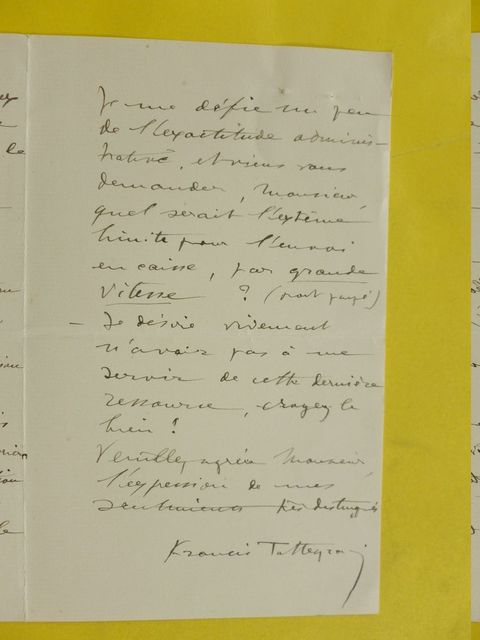 Je me défie un peu
de l'exactitude adminis-
trative, et viens vous
demander, Monsieur,
quel serait l'extême
limite pour l'envoi
en caisse, par grande
vitesse ? (port payé)
– Je désire vivement
n'avoir pas à me
servir de cette dernière
ressource, croyez le
bien !
Veuillez agréer Monsieur,
l'expession de mes
sentiments très distingués
Francis Tattegrain
le